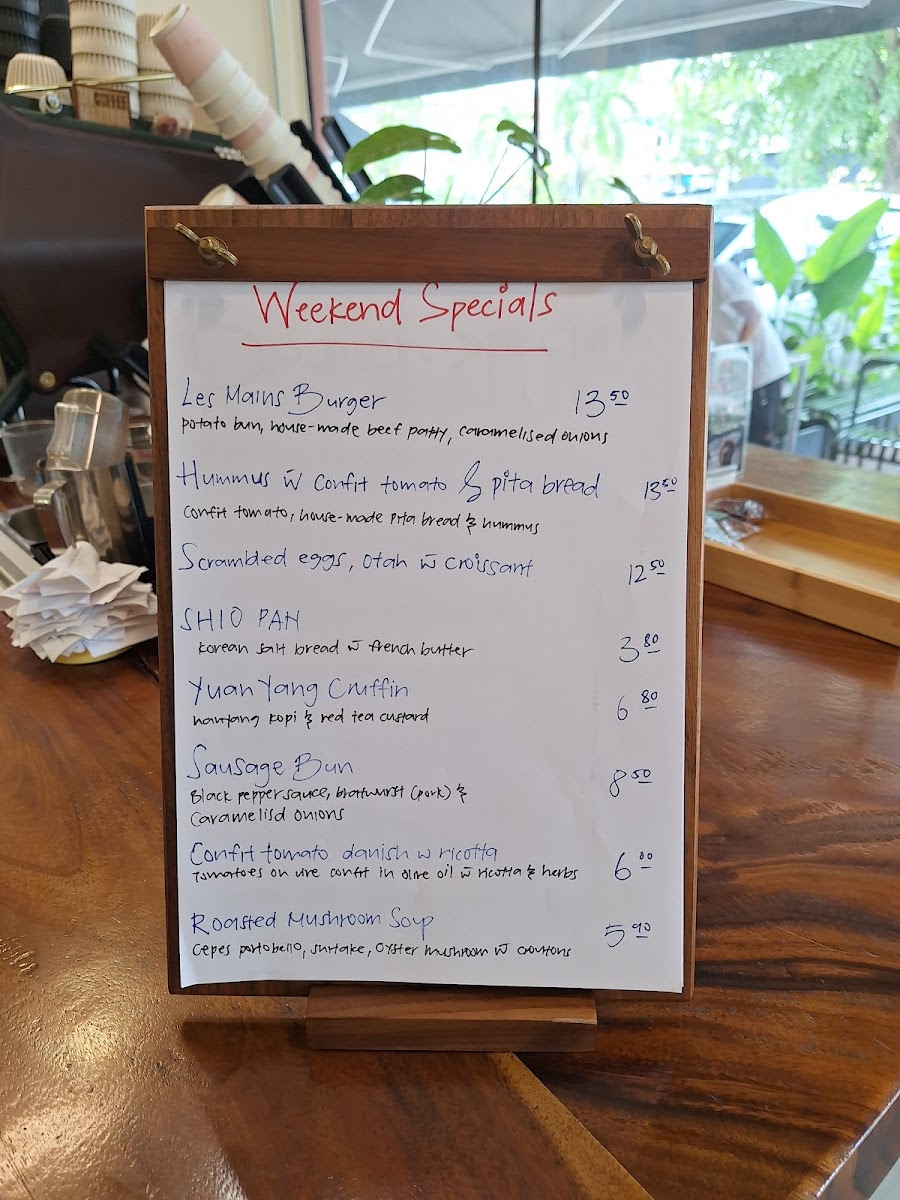 COFFEE
Weekend Specials
Les Mains Burger 13 50
potato bun, house-made beef patty, caramelised onions
Hummus w̄ confit tomato & pita bread 13 50
confit tomato, house-made pita bread & hummus
Scrambled eggs, otah w̄ croissant 12 50
SHIO PAN
korean salt bread w̄ french butter 3 80
Yuan Yang Cruffin
nanyang kopi & red tea custard 6 80
Sausage Bun
Black pepper sauce, bratwurst (pork) & 8 50
Caramelisd onions
Confit tomato danish w ricotta
Tomatoes on vire confit in olive oil w̄ ricotta & herbs 6 00
Roasted Mushroom Soup
cepes portobello, shitake, oyster mushroom w̄ croutons 5 90